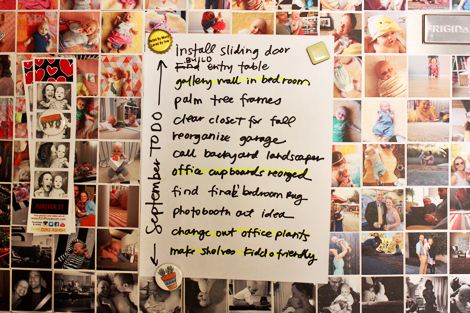 September TO DO
install sliding door
BUILD
Find entry table
gallery wall in bedroom
palm tree frames
clear closet for fall
reorganize garage
call backyard landscaper
office cupboards reorged
find final bedroom rug
photobooth art idea
change out office plants
make shelves kiddo friendly
FRIGIDA